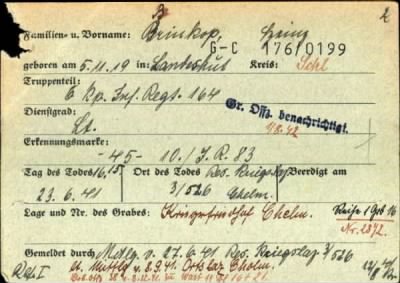 B 2
Familien- u. Vorname: Brinkop, Heinz
G-C 176/0199
geboren am 5.11.19 in: Landeshut Kreis: Schl
Truppenteil:
6 Kp. Inf. Regt. 164
Dienstgrad: Gr. Offz. benachrichtigt.
Lt.
Erkennungsmarke:
-45- 10./J.R. 83
Tag des Todes 16,15 Ort des Todes Res. Kriegslaz Beerdigt am
23.6.41 3/526
Chelm.
Lage und Nr. des Grabes: Kriegerfriedhof Chelm. Reihe 1 Grb 16
Nr. 2872.
Gemeldet durch Mtlg v. 27.6.41 Res. Kriegslaz 3/526
u. Mittlg v. 8.9.41 Ortslaz Cholm.